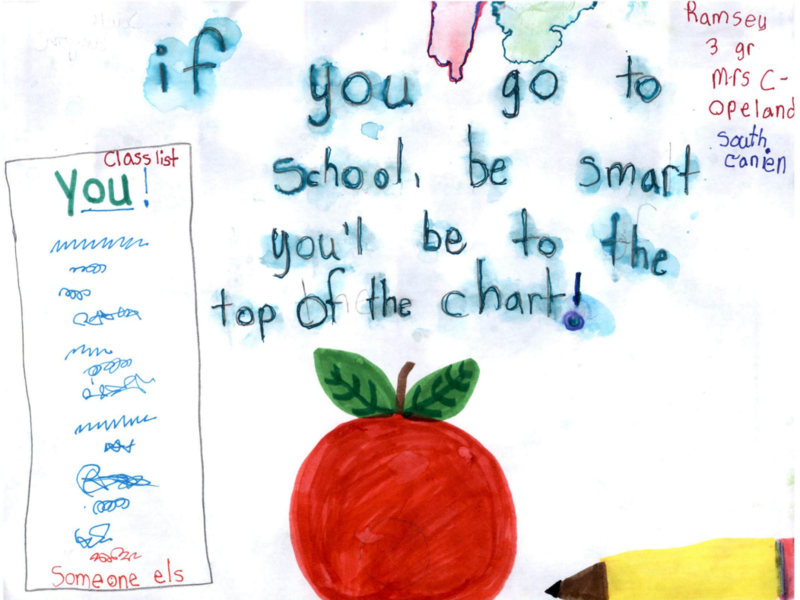 if you go to
school, be smart
you'l be to the
top of the chart!
Ramsey
3 gr
Mrs C-
opeland
South
Canien
Class list
You!
Someone els